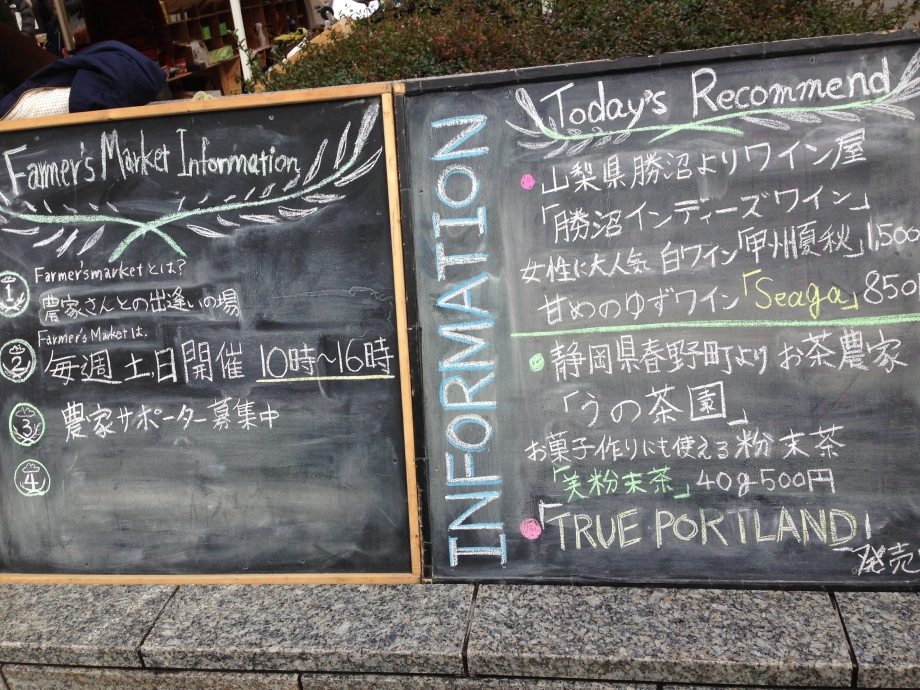 Farmer's Market Information
1
Farmer'smarketとは?
農家さんとの出逢いの場
2
Farmer's Marketは、
毎週土日開催 10時〜16時
3
農家サポーター募集中
4
INFORMATION
Today's Recommend
山梨県勝沼よりワイン屋
「勝沼インディーズワイン」
女性に大人気 白ワイン「甲州夏秋」1,500
甘めのゆずワイン「Seaga」850
静岡県春野町よりお茶農家
「うの茶園」
お菓子作りにも使える粉末茶
「美粉末茶」40g500円
「TRUE PORTLAND」
発売